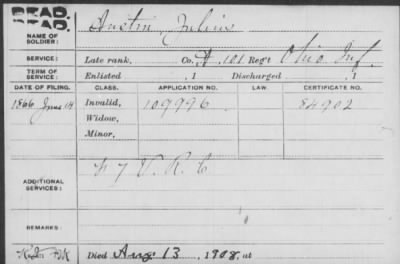 DEAD.
DEAD.
NAME OF SOLDIER: Austin, Julius
SERVICE: Late rank, Co. A, 101 Reg't Ohio Inf.
TERM OF SERVICE: Enlisted , 1 Discharged , 1
DATE OF FILING. CLASS. APPLICATION NO. LAW. CERTIFICATE NO.
1866 June 14 Invalid, 109996 84902
Widow,
Minor,
ADDITIONAL SERVICES: 7 V. R. C
REMARKS:
Died Aug 13, 1908, at